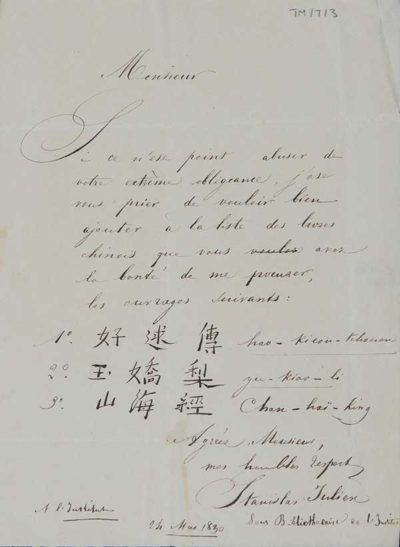 TM/7/3
Monsieur
Si ce n'est point abuser de
votre extrême obligeance, j'ose
vous prier de vouloir bien
ajouter à la liste des livres
chinois que vous voulez avez
la bonté de me procurer,
les ouvrages suivants:
1o. 好逑傳 hao-kieou-tchouan
2o. 玉嬌梨 yu-kiao-li
3o. 山海經 Chan-haï-king
Agréez Monsieur,
mes humbles respects
Stanislas Julien
Sous Bibliothécaire de l'Institut
A l'Institut
24 Mai 1830